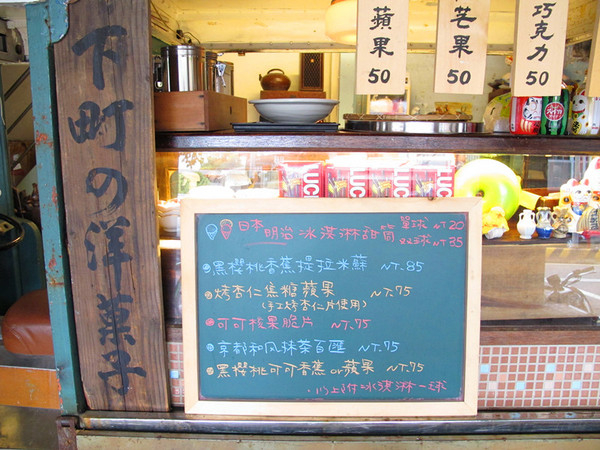 下町の洋菓子
蘋果
50
芒果
50
巧克力
50
日本明治冰淇淋甜筒 單球NT20
双球NT35
黑櫻桃香蕉提拉米蘇 NT.85
烤杏仁焦糖蘋果 NT.75
(手工烤杏仁片使用)
可可核果脆片 NT.75
京都和风抹茶百匯 NT.75
黑櫻桃可可香蕉or蘋果 NT.75
·以上附冰淇淋一球